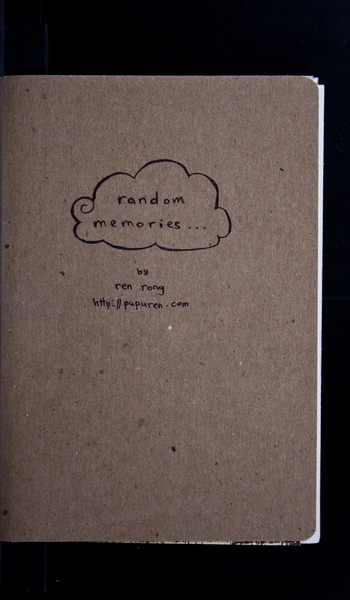 random
memories...
by
ren rong
http://pupuren.com